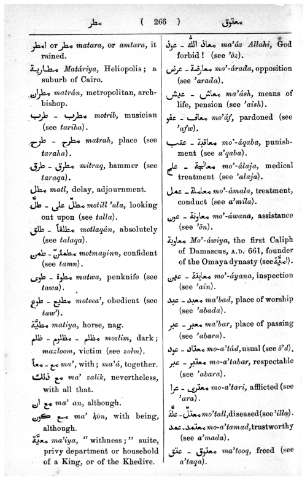 مطر ( 266 ) معقوق
مطر or امطر matara, or amtara, it
rained.
مطارية Matâriya, Heliopolis; a
suburb of Cairo.
مطران matrân, metropolitan, arch-
bishop.
مطرب – طرب motrib, musician
(see tariba).
مطرح – طرح matrah, place (see
taraha).
مطرق – طرق mitraq, hammer (see
taraqa).
مطل matl, delay, adjournment.
مطل على – طل motill 'ala, looking
out upon (see talla).
مطلقاً – طلق motlaqân, absolutely
(see talaqa).
مطمئن – طمن motmayinn, confident
(see tamn).
مطوة – طوى matwa, penknife (see
tawa).
مطيع – طوع mateea', obedient (see
taw').
مطية matiya, horse, nag.
مظلم – مظلوم – ظلم mozlim, dark;
mazloom, victim (see zolm).
مع – معاً ma', with; ma'â, together.
مع ذلك ma' zalik, nevertheless,
with all that.
مع ان ma' an, although.
مع كون ma' kôn, with being,
although.
معية ma'iya, "withness;" suite,
privy department or household
of a King, or of the Khedive.
معاذ الله – عوذ ma'âz Allahi, God
forbid! (see 'ôz).
معارضة – عرض mo'ârada, opposition
(see 'arada).
معاش – عيش ma'âsh, means of
life, pension (see 'aish).
معاف – عفو ma'âf, pardoned (see
'afw).
معاقبة – عقب mo'âqaba, punish-
ment (see a'qaba).
معالجة – على mo'âlaja, medical
treatment (see 'alaja).
معاملة – عمل mo'âmala, treatment,
conduct (see a'mila).
معاونة – عون mo'âwana, assistance
(see 'ôn).
معاوية Mo'âwiya, the first Caliph
of Damascus, A.D. 661, founder
of the Omaya dynasty (see امية).
معاينة – عين mo'âyana, inspection
(see 'ain).
معبد – عبد ma'bad, place of worship
(see 'abada).
معبر – عبر ma'bar, place of passing
(see 'abara).
معتاد – عود mo-a'tâd, usual (see ô'd).
معتبر – عبر mo-a'tabar, respectable
(see 'abara).
معترى – عرا mo-a'tari, afflicted (see
'ara).
معتل – عل mo'tall, diseased (see 'illa).
معتمد – عمد mo-a'tamad, trustworthy
(see a'mada).
معتوق – عتق ma'tooq, freed (see
a'taqa).